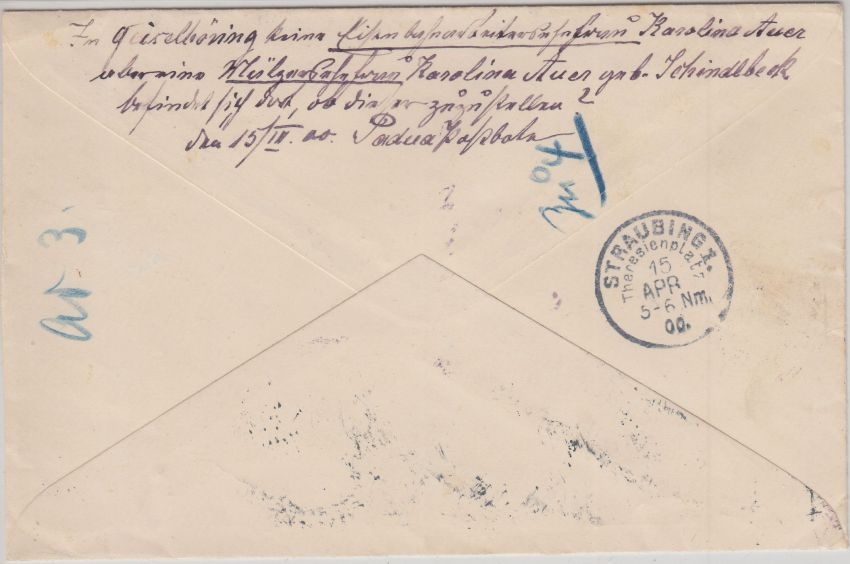 In Geiselhöring keine Eisenbahnarbeitersehefrau Karolina Auer
aber eine Karolina Auer geb. Schindlbeck
befindet sich dort, ob dieser zuzustellen?
den 15/IV. 00. Postbote
zu 4
3.
STRAUBING 1.
Theresienplatz
15
APR
5-6 Nm.
00.